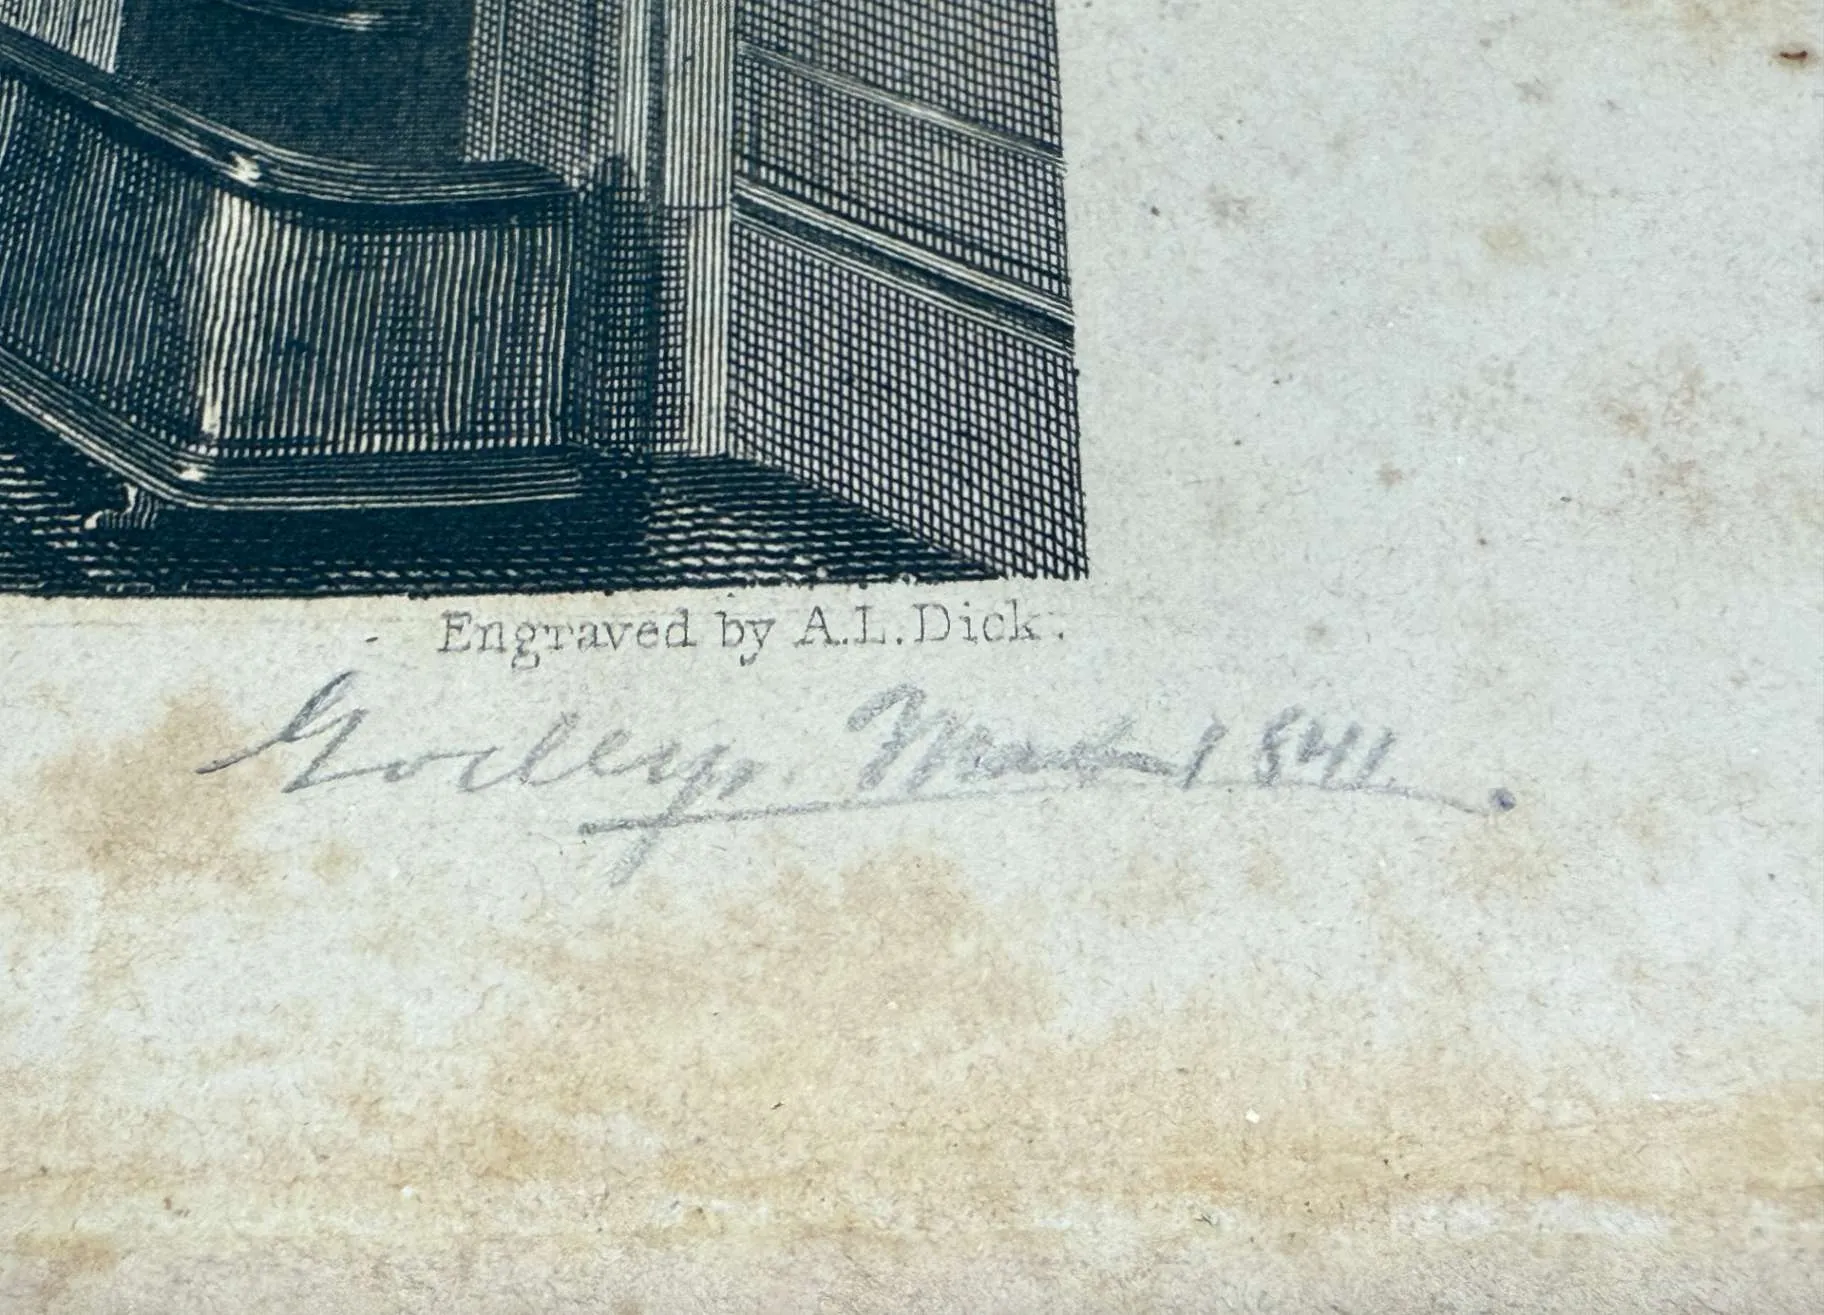 Engraved by A.L.Dick.
Godeys. March 1841.